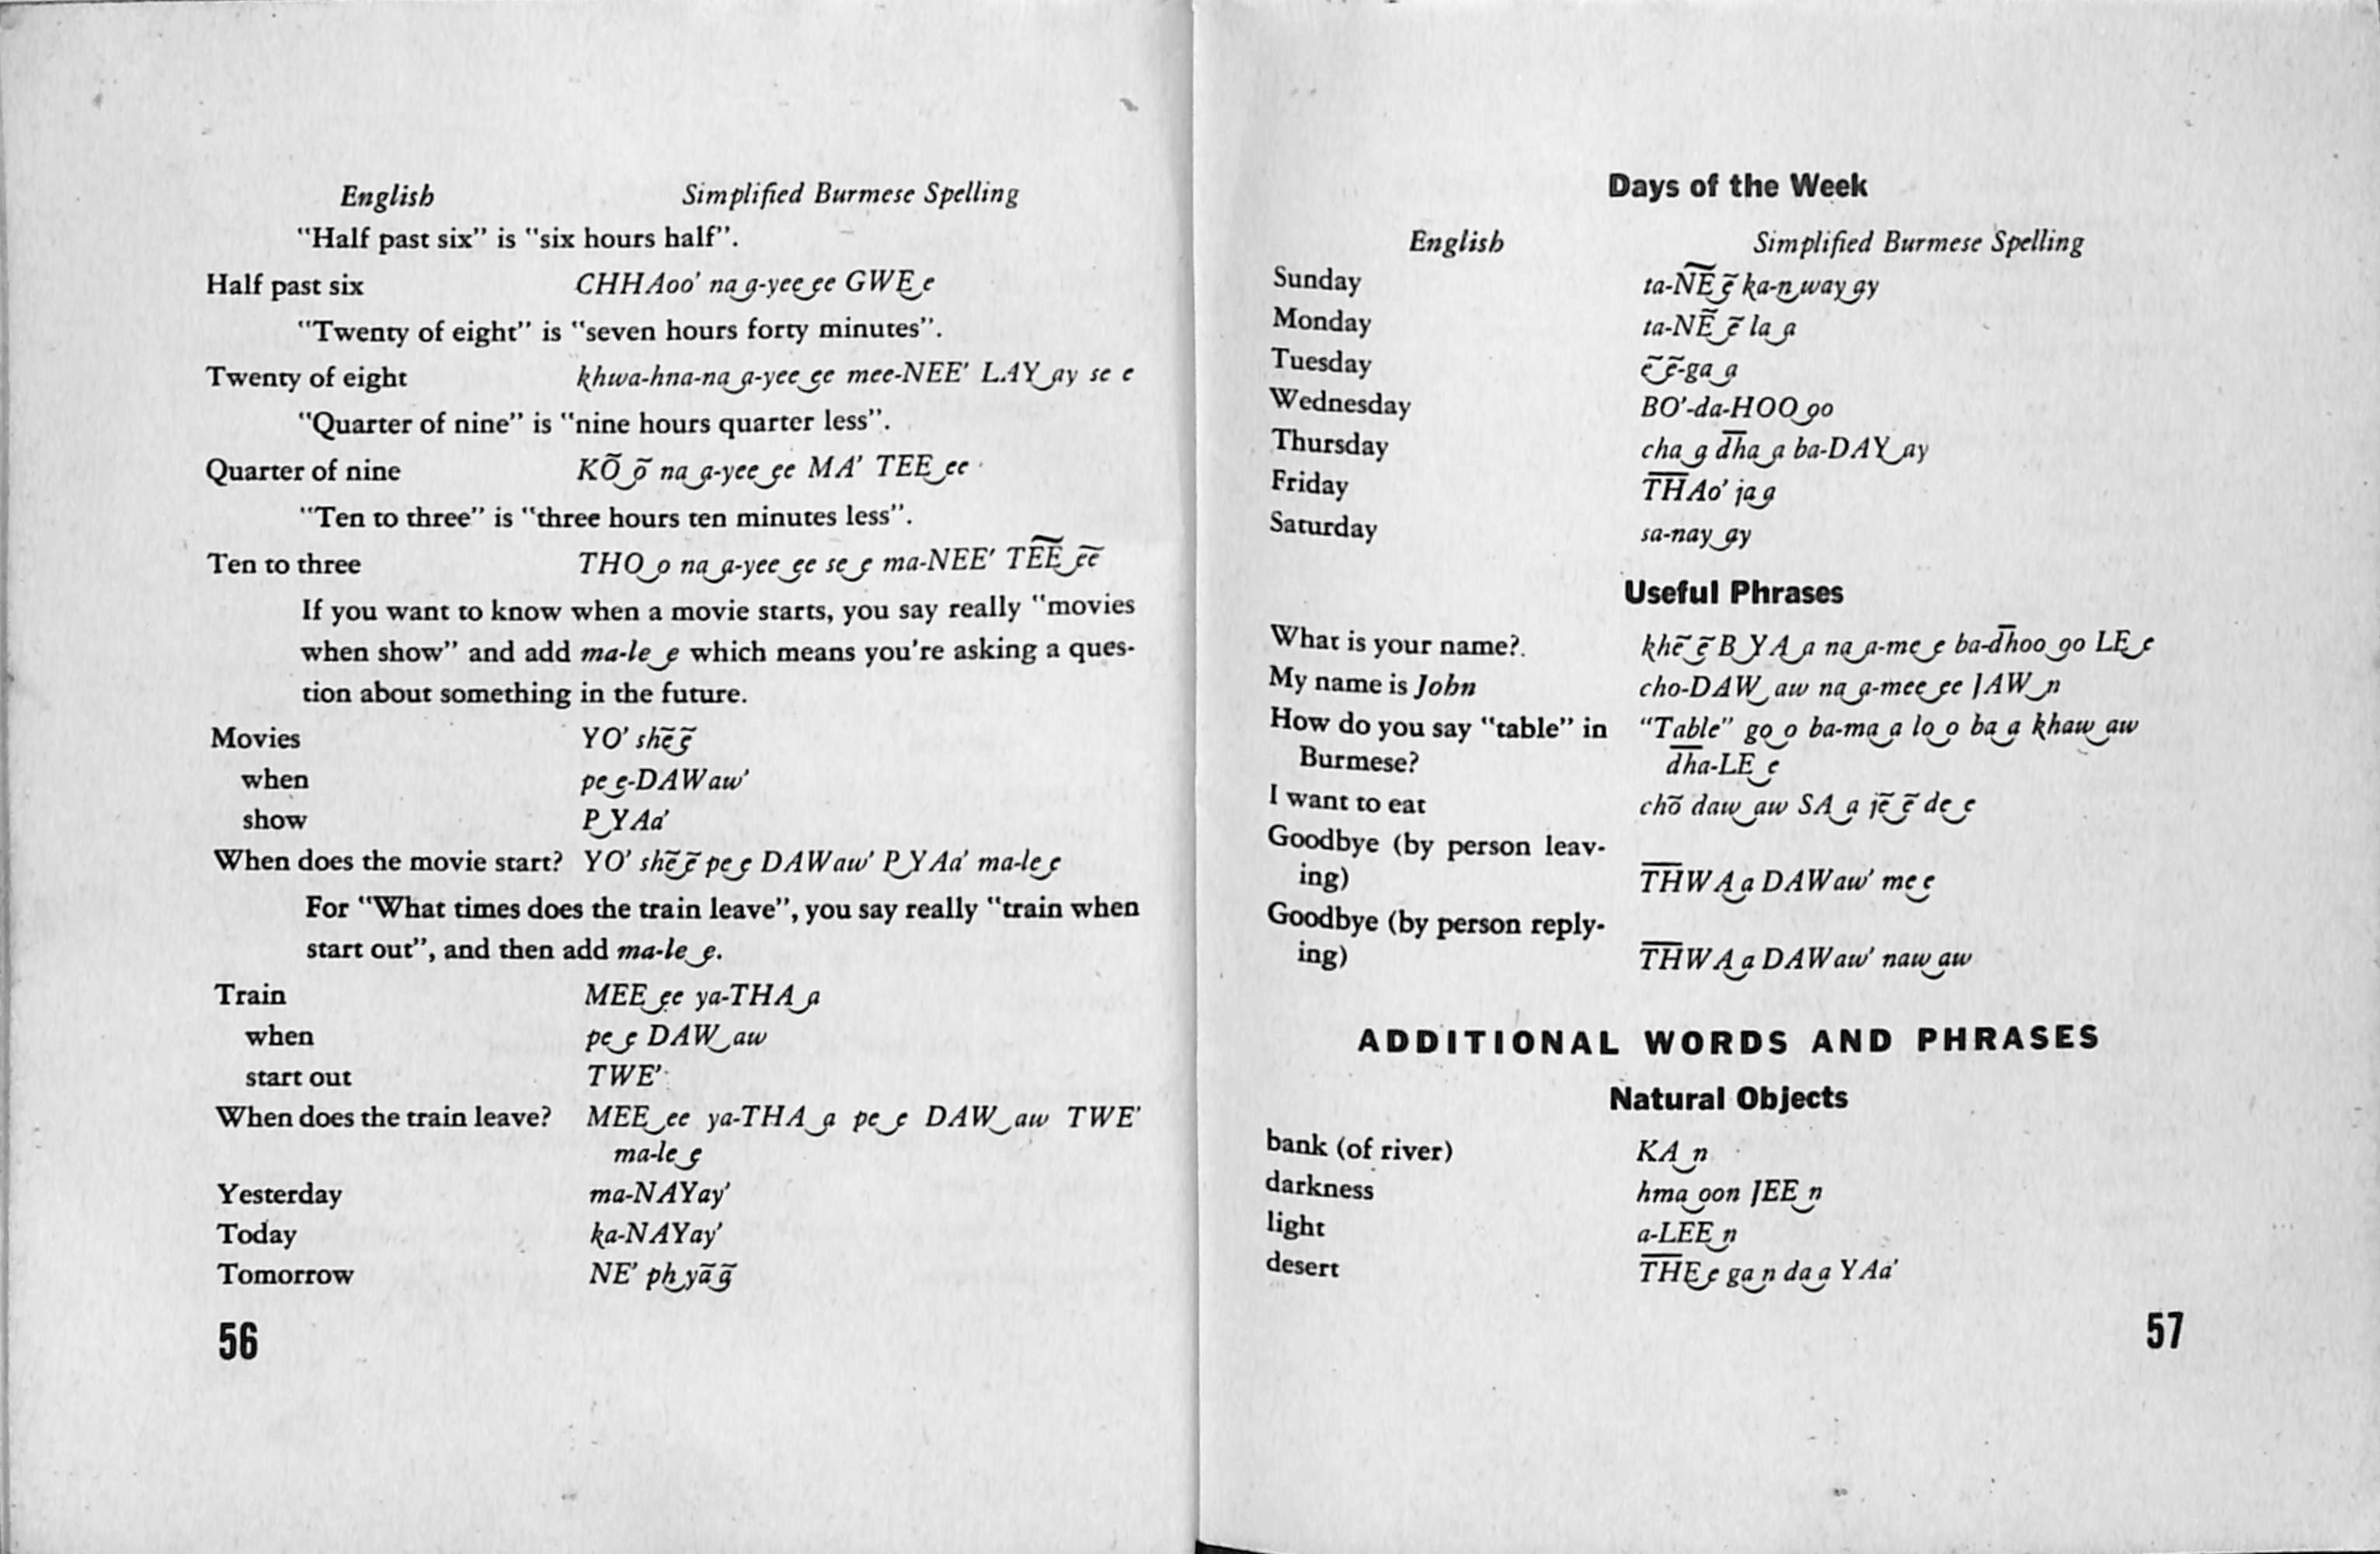 English Simplified Burmese Spelling
"Half past six" is "six hours half".
Half past six CHHAoo' na‿a-yee‿ee GWE‿e
"Twenty of eight" is "seven hours forty minutes".
Twenty of eight khwa-hna-na‿a-yee‿ee mee-NEE' LAY‿ay se e
"Quarter of nine" is "nine hours quarter less".
Quarter of nine KÕ‿õ na‿a-yee‿ee MA' TEE‿ee
"Ten to three" is "three hours ten minutes less".
Ten to three THO‿o na‿a-yee‿ee se‿e ma-NEE' TE͠E‿e͠e
If you want to know when a movie starts, you say really "movies
when show" and add ma-le‿e which means you're asking a ques-
tion about something in the future.
Movies YO' shẽ‿ẽ
when pe‿e-DAWaw'
show P‿YAa'
When does the movie start? YO' shẽ‿ẽ pe‿e DAWaw' P‿YAa' ma-le‿e
For "What times does the train leave", you say really "train when
start out", and then add ma-le‿e.
Train MEE‿ee ya-THA‿a
when pe‿e DAW‿aw
start out TWE'
When does the train leave? MEE‿ee ya-THA‿a pe‿e DAW‿aw TWE'
ma-le‿e
Yesterday ma-NAYay'
Today ka-NAYay'
Tomorrow NE' ph‿yã‿ã
56
Days of the Week
English Simplified Burmese Spelling
Sunday ta-N͠E‿ẽ ka-n‿way‿ay
Monday ta-NẼ‿ẽ la‿a
Tuesday ẽ‿ẽ-ga‿a
Wednesday BO'-da-HOO‿oo
Thursday cha‿a d͞ha‿a ba-DAY‿ay
Friday T͞HAo' ja‿a
Saturday sa-nay‿ay
Useful Phrases
What is your name?. khẽ‿ẽ B‿YA‿a na‿a-me‿e ba-d͞hoo‿oo LE‿e
My name is John cho-DAW‿aw na‿a-mee‿ee JAW‿n
How do you say "table" in "Table" go‿o ba-ma‿a lo‿o ba‿a khaw‿aw
Burmese? d͞ha-LE‿e
I want to eat chõ daw‿aw SA‿a jẽ‿ẽ de‿e
Goodbye (by person leav-
ing) T͞HWA‿a DAWaw' me‿e
Goodbye (by person reply-
ing) T͞HWA‿a DAWaw' naw‿aw
ADDITIONAL WORDS AND PHRASES
Natural Objects
bank (of river) KA‿n
darkness hma‿oon JEE‿n
light a-LEE‿n
desert T͞HE‿e ga‿n da‿a YAa'
57